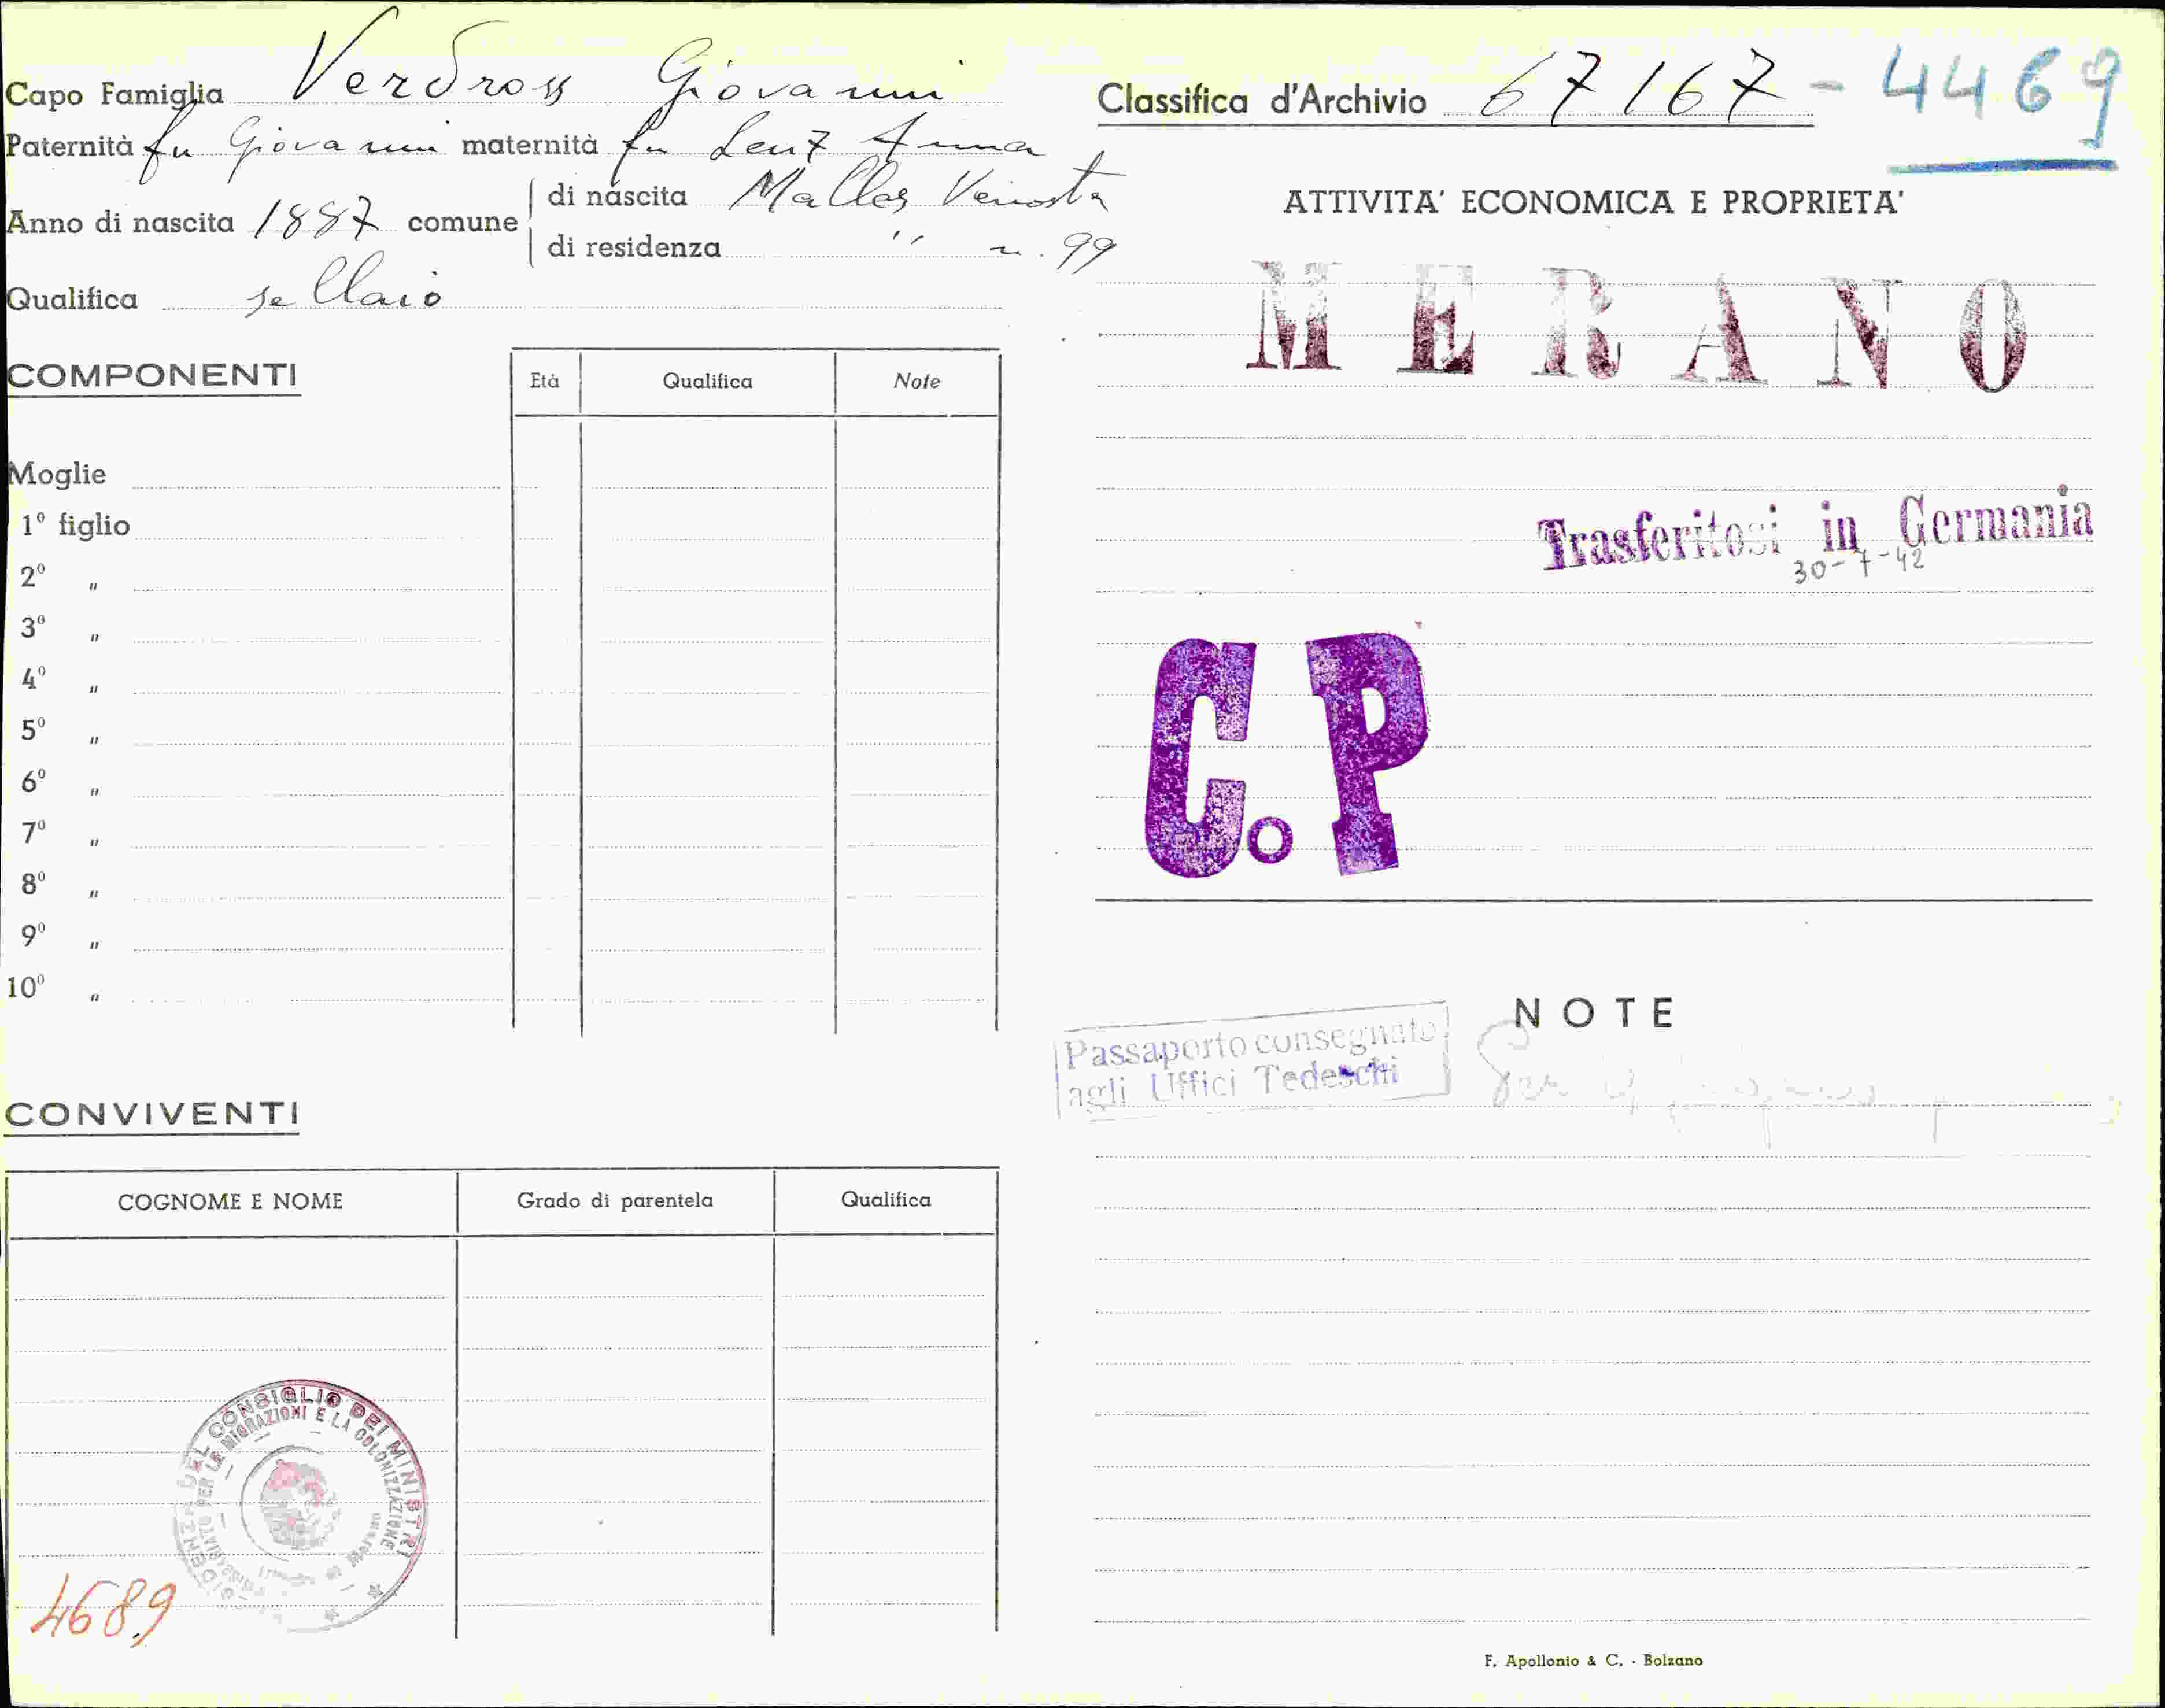 Capo Famiglia Verdross Giovanni
Paternità fu Giovanni maternità fu Lenz Anna
Anno di nascita 1887 comune di nascita Malles Venosta
di residenza " n. 99
Qualifica sellaio
COMPONENTI
Età Qualifica Note
Moglie
1º figlio
2º "
3º "
4º "
5º "
6º "
7º "
8º "
9º "
10º "
CONVIVENTI
COGNOME E NOME Grado di parentela Qualifica
CONSIGLIO DEI MINISTRI
PER LE MIGRAZIONI E LA COLONIZZAZIONE
4689
Classifica d'Archivio 67167 - 4469
ATTIVITA' ECONOMICA E PROPRIETA'
MERANO
Trasferitosi in Germania
30-7-42
C.P
NOTE
Passaporto consegnato
agli Uffici Tedeschi
F. Apollonio & C. - Bolzano